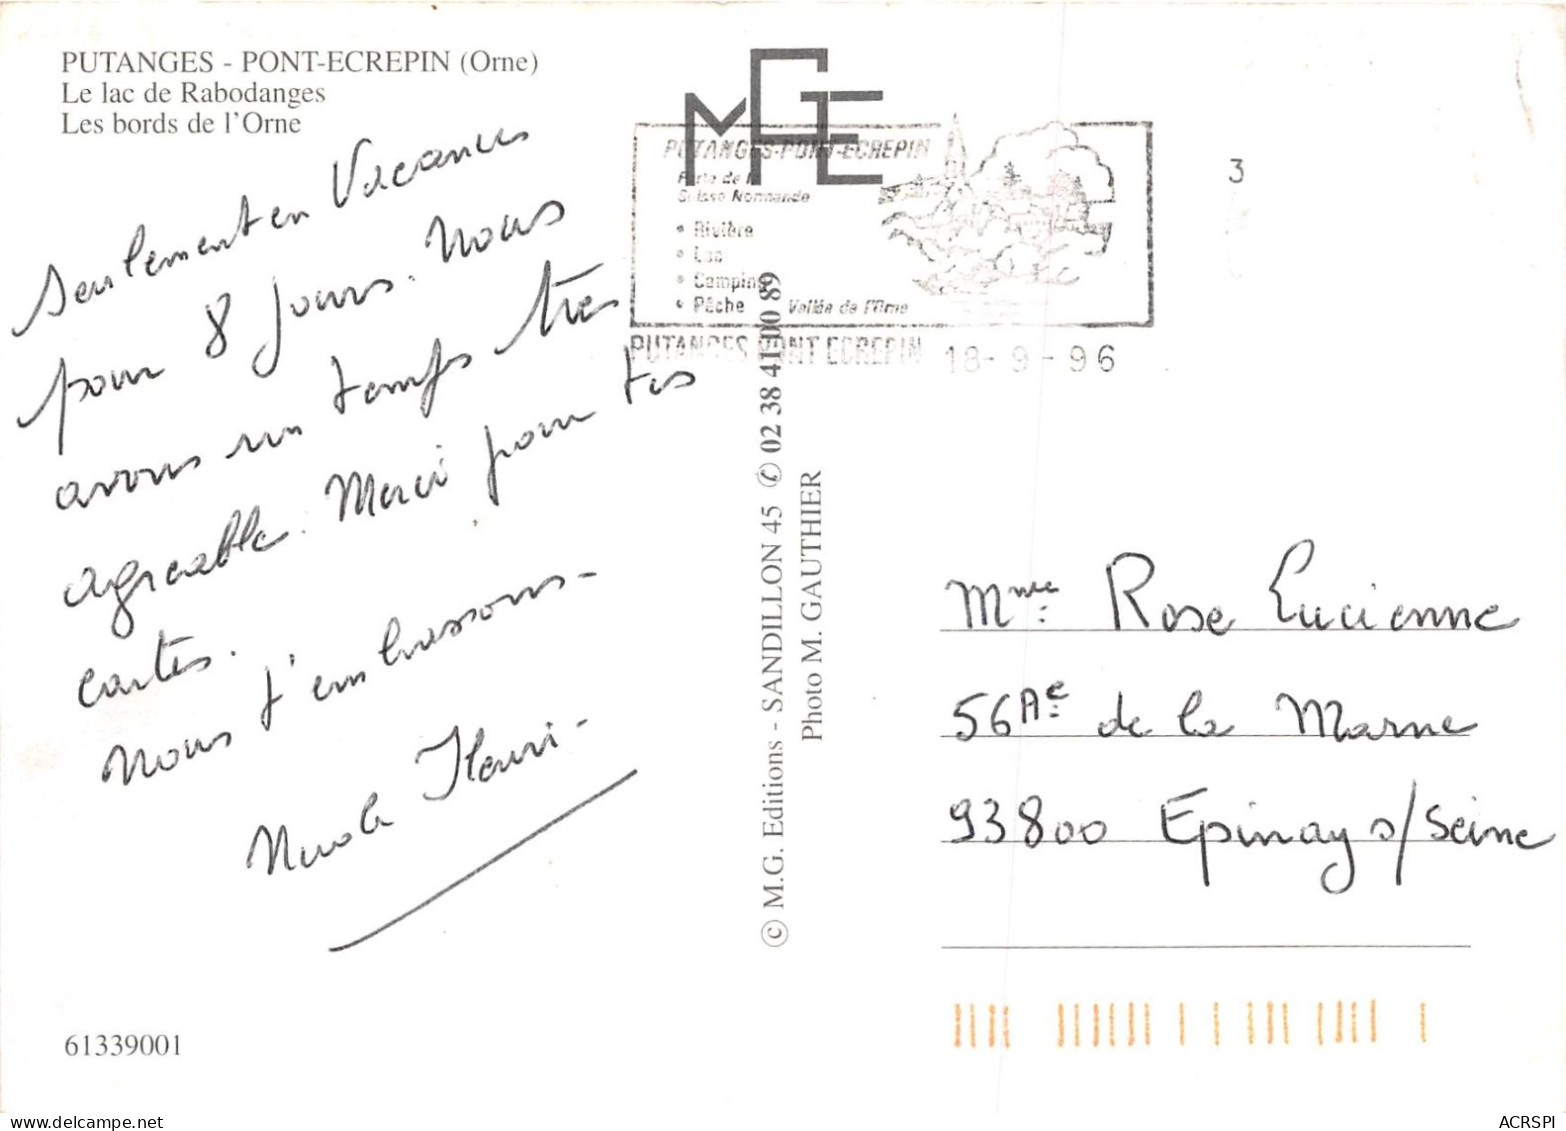 PUTANGES - PONT-ECREPIN (Orne)
Le lac de Rabodanges
Les bords de l'Orne
Seulement en Vacances
pour 8 jours. Nous
avons un temps très
agréable. Merci pour tes
cartes.
Nous t'embrassons -
Nicole Henri -
61339001
MGE
PUTANGES-PONT-ECREPIN
Porte de la
Suisse Normande
• Rivière
• Lac
• Camping
• Pêche
Vallée de l'Orne
PUTANGES PONT ECREPIN 18-9-96
3
© M.G. Editions - SANDILLON 45 ✆ 02 38 41 00 89
Photo M. GAUTHIER
Mme Rose Lucienne
56 Ae de la Marne
93800 Epinay s/Seine
www.delcampe.net
ACRSPI